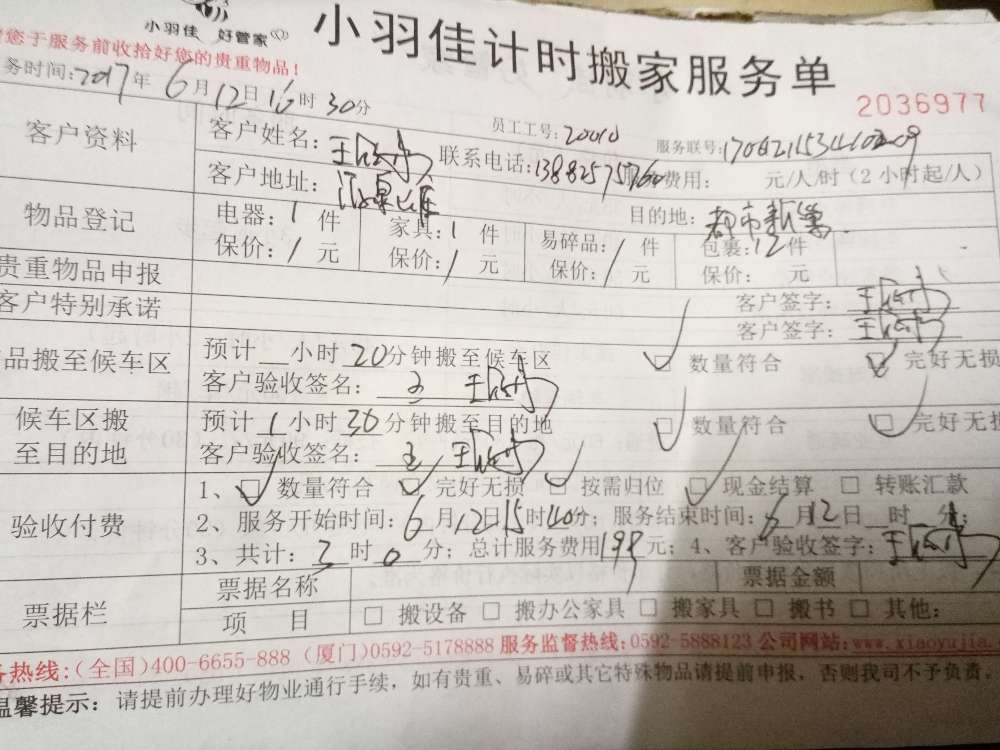 小羽佳 好管家
小羽佳计时搬家服务单
您于服务前收拾好您的贵重物品!
2036977
务时间:2017年6月12日16时30分
员工工号:20010
服务联号:
客户资料
客户姓名:王
联系电话:
费用: 元/人/时(2小时起/人)
客户地址:
目的地:都市新
物品登记
电器:1件 家具:1件 易碎品:/件 包裹:12件
保价:/元 保价:/元 保价:/元 保价: 元
贵重物品申报
客户签字:王
客户特别承诺
客户签字:王
品搬至候车区
预计 小时20分钟搬至候车区 ☑ 数量符合 ☑ 完好无损
客户验收签名: 王
候车区搬
至目的地
预计1小时30分钟搬至目的地 ☑ 数量符合 ☑ 完好无损
客户验收签名: 王
验收付费
1、☑ 数量符合 ☑ 完好无损 ☑ 按需归位 ☑ 现金结算 □ 转账汇款
2、服务开始时间:6月12日15时40分;服务结束时间:6月12日 时 分;
3、共计:3时0分;总计服务费用199元;4、客户验收签字:王
票据栏
票据名称 票据金额
项 目 □ 搬设备 □ 搬办公家具 □ 搬家具 □ 搬书 □ 其他:
务热线:(全国)400-6655-888 (厦门)0592-5178888 服务监督热线:0592-5888123 公司网站:www.xiaoyujia.
温馨提示:请提前办理好物业通行手续,如有贵重、易碎或其它特殊物品请提前申报,否则我司不予负责。